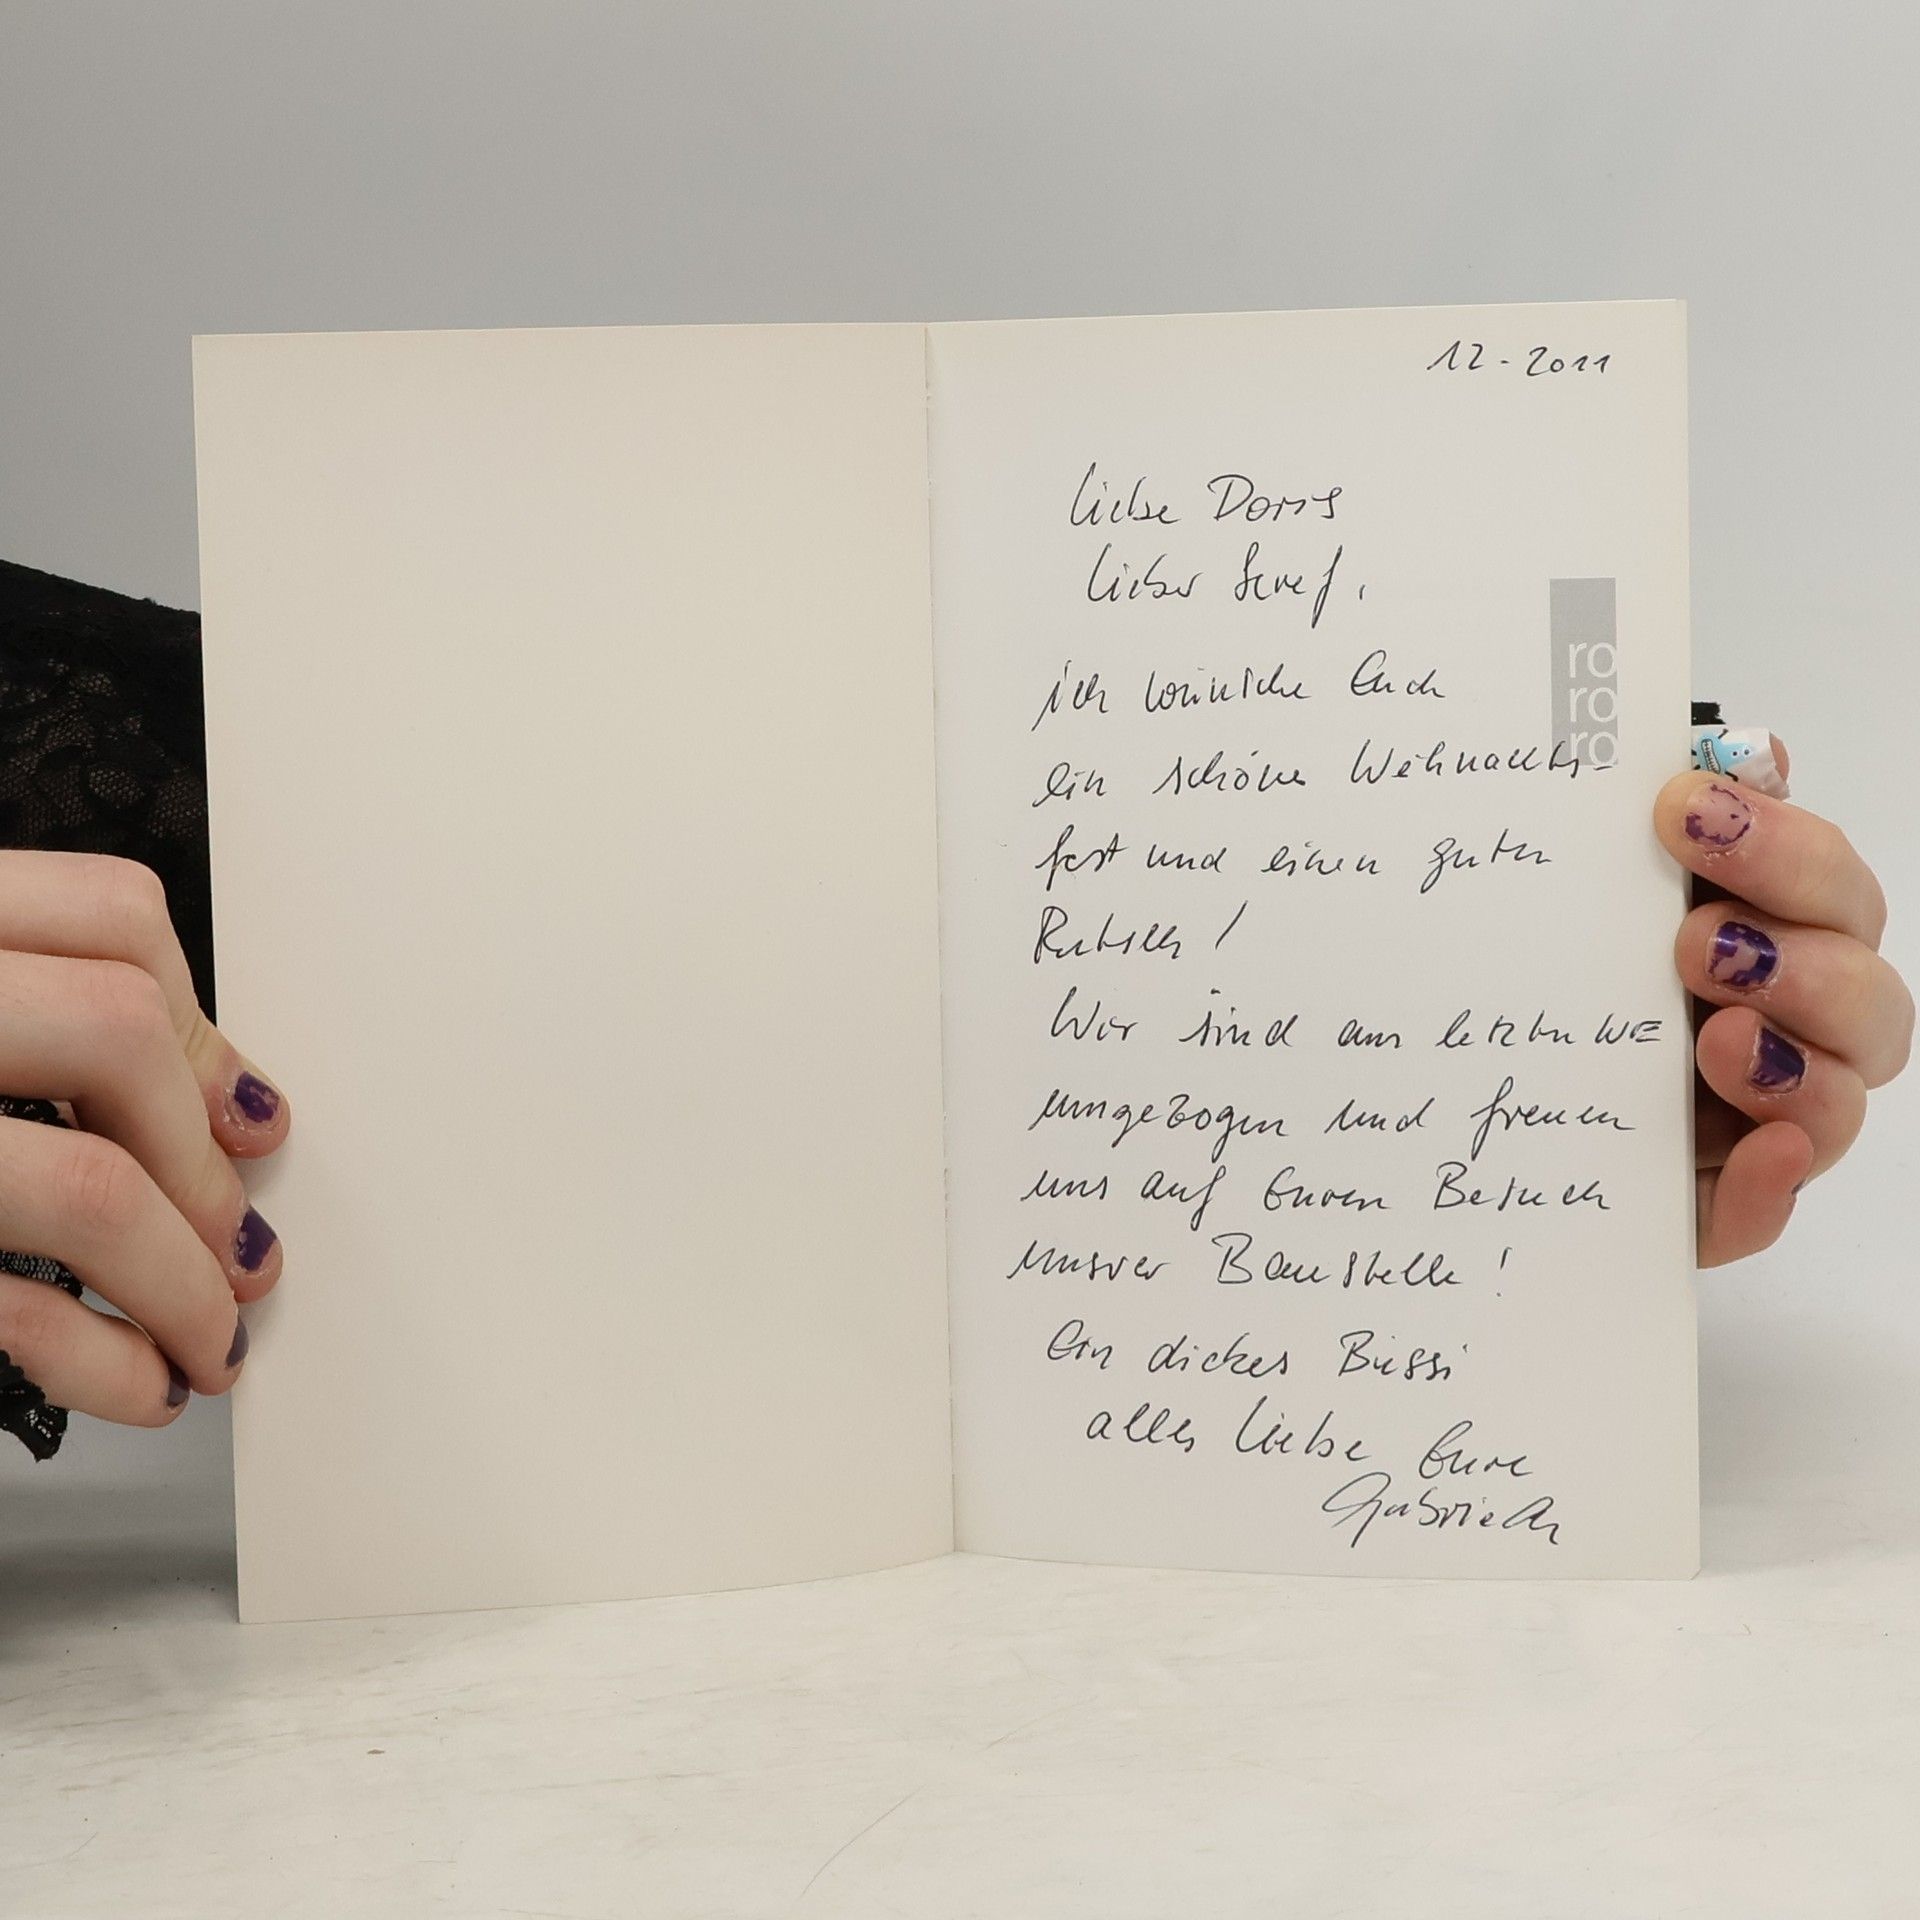 12 - 2011
Liebe Doris
Lieber Seref,
ich wünsche Euch
ro
ro
ro
ein schönes Weihnachts-
fest und einen guten
Rutsch!
Wir sind am letzten WE
umgezogen und freuen
uns auf Euren Besuch
unsrer Baustelle!
Ein dickes Bussi
alles Liebe Eure
Gabriela